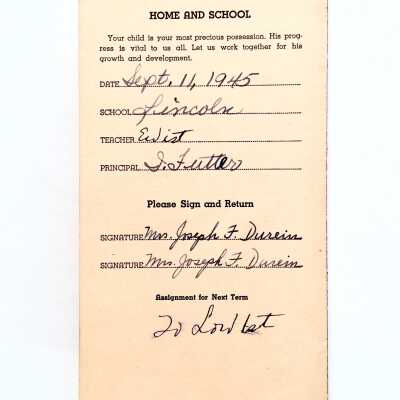 HOME AND SCHOOL
Your child is your most precious possession. His prog-
ress is vital to us all. Let us work together for his
growth and development.
DATE Sept. 11, 1945
SCHOOL Lincoln
TEACHER
PRINCIPAL
Please Sign and Return
SIGNATURE Mrs. Joseph F. Durein
SIGNATURE Mrs. Joseph F. Durein
Assignment for Next Term
To Low 1st